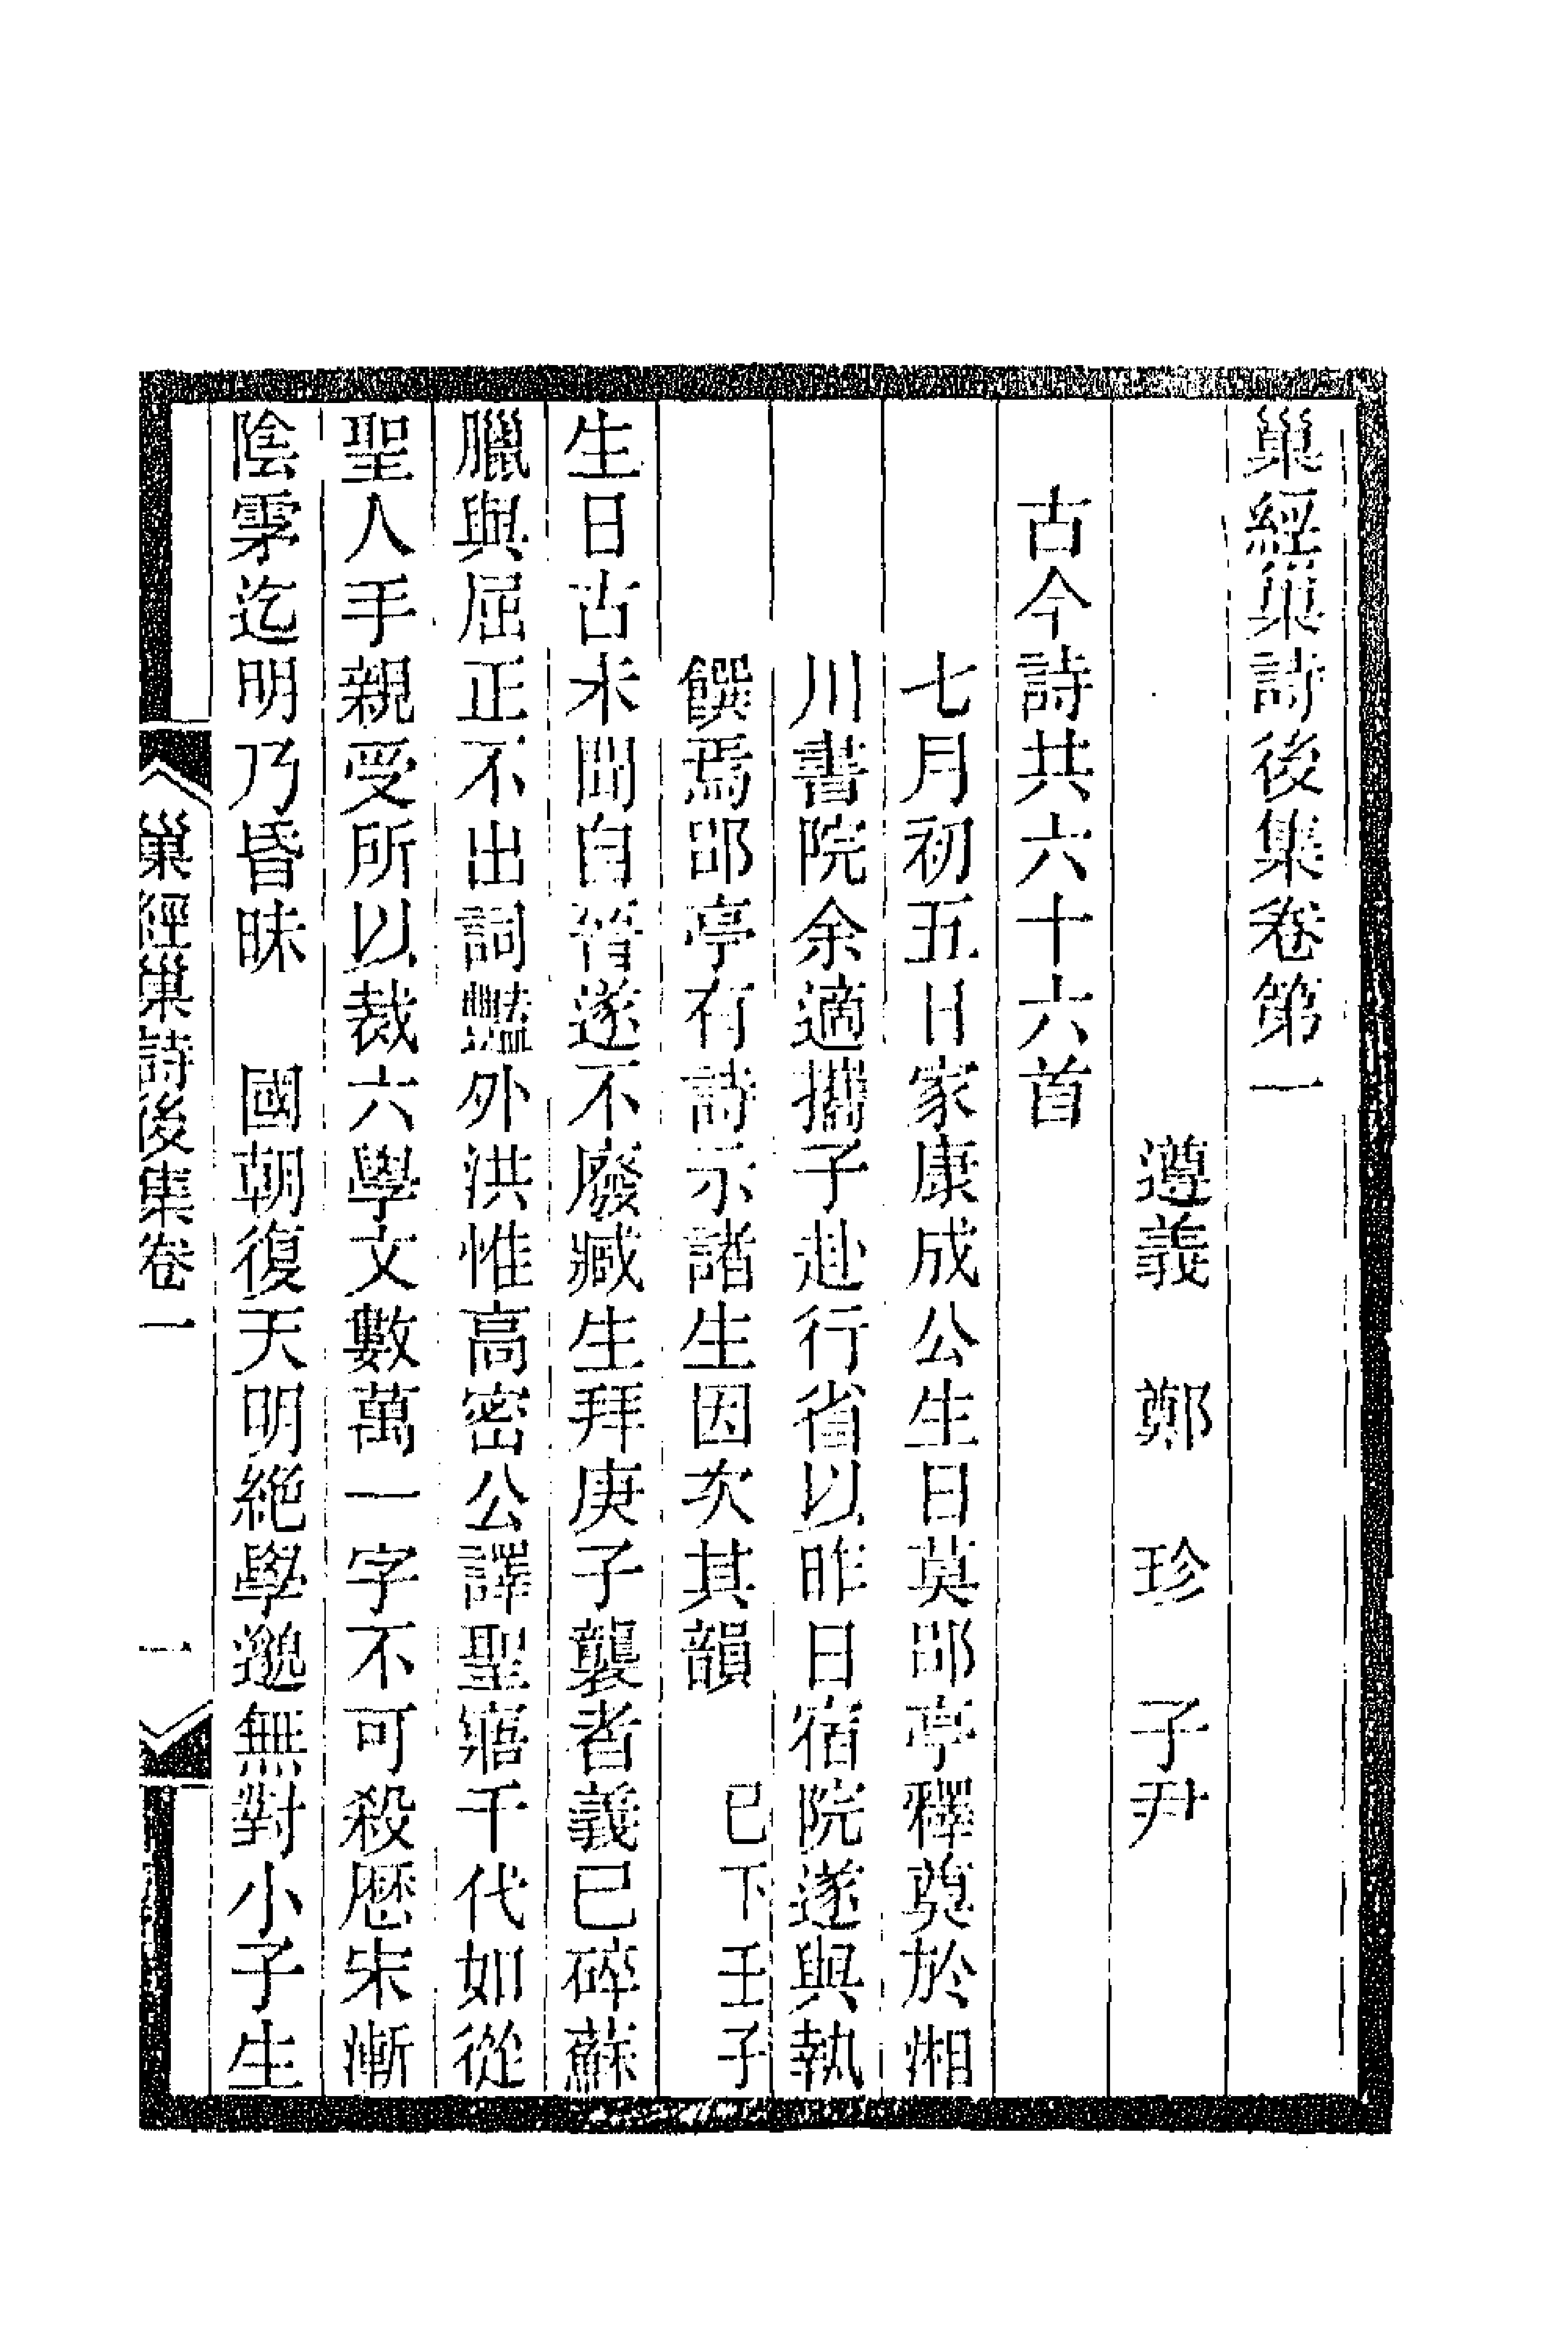 巢經巢詩後集卷第一
遵義 鄭 珍 子尹
古今詩共六十六首
七月初五日家康成公生日莫邵亭釋奠於湘
川書院余適攜子赴行省以昨日宿院遂與執
饌焉邵亭有詩示諸生因次其韻 已下壬子
生日古未聞自晉遂不廢臧生拜庚子襲者義已碎蘇
臘與屈正不出詞豔外洪惟高密公譯聖寤千代如從
聖人手親受所以裁六學文數萬一字不可殺歷宋漸
陰雺迄明乃昏昧 國朝復天明絕學邈無對小子生
巢經巢詩後集卷一 一